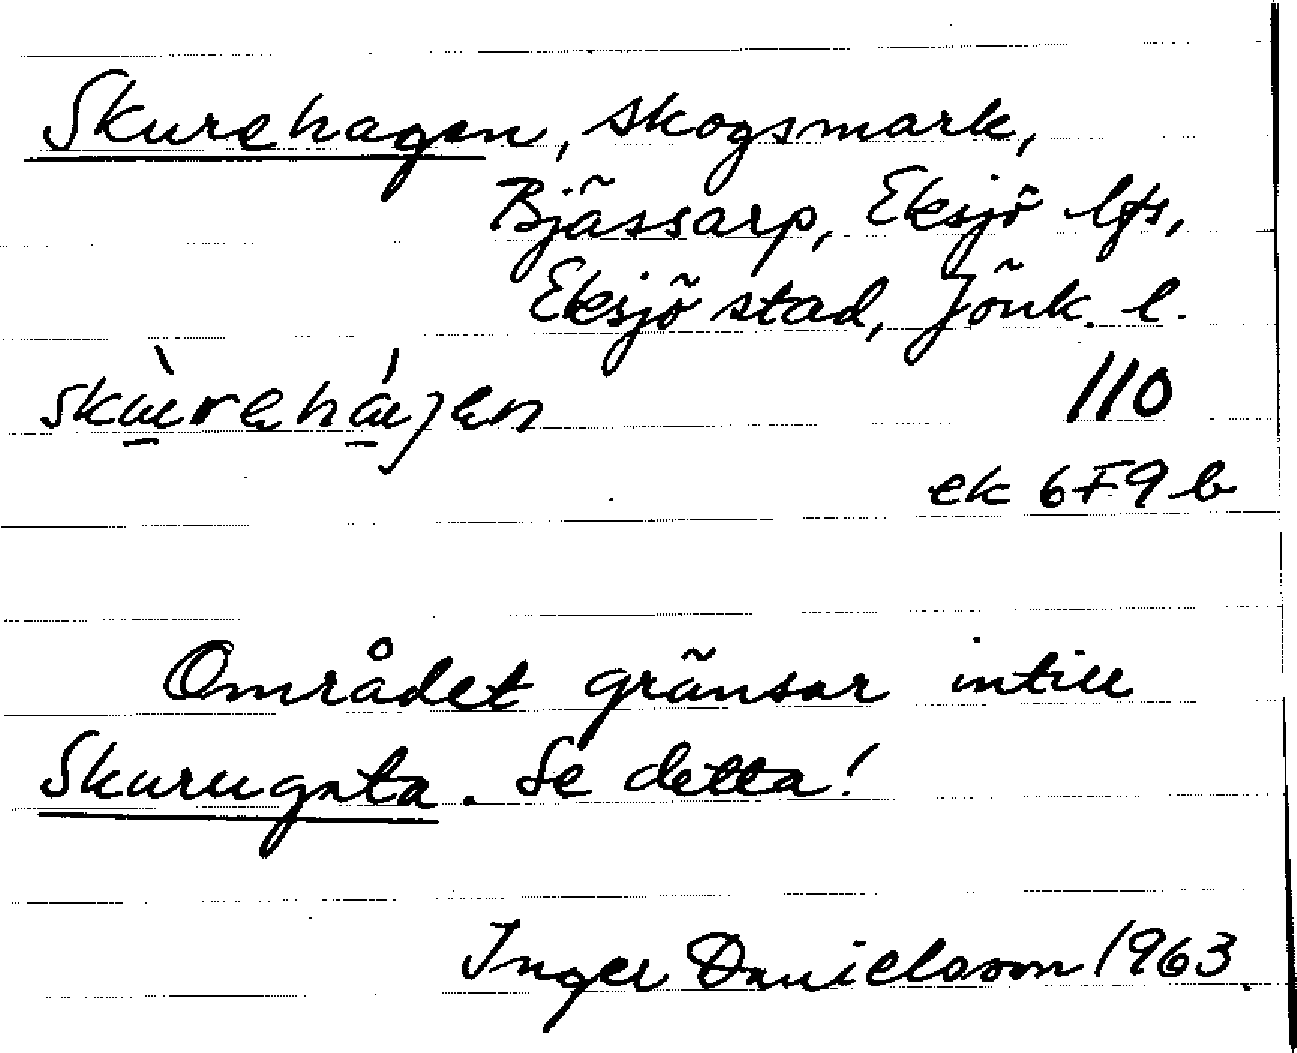 Skurehagen, skogsmark,
Bjässarp, Eksjö lfs,
Eksjö stad, Jönk. l.
110
ek 6F9b
Området gränsar intill
Skurugata. Se detta!
Inger Danielsson 1963.